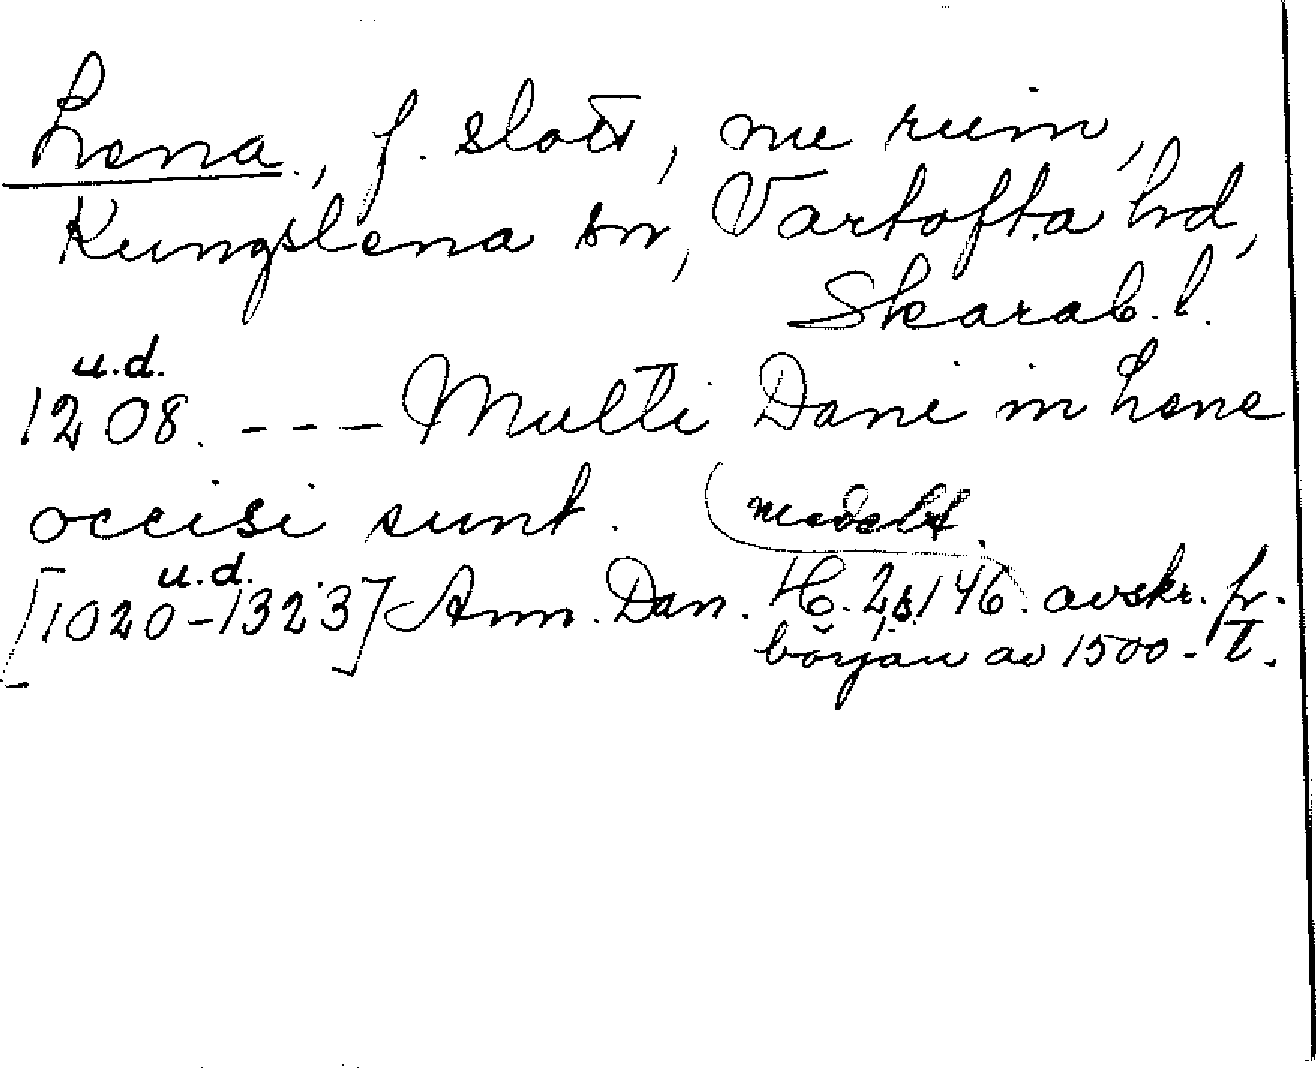 Lena., f. slott, nu ruin,
Kungslena sn, Vartofta hd,
Skarab. l.
u.d.
1208. --- Multi Dani in Lene
occisi sunt. medelt.
u.d.
[1020-1323] Ann. Dan. H. 2, s. 146. avskr. fr.
början av 1500-t.